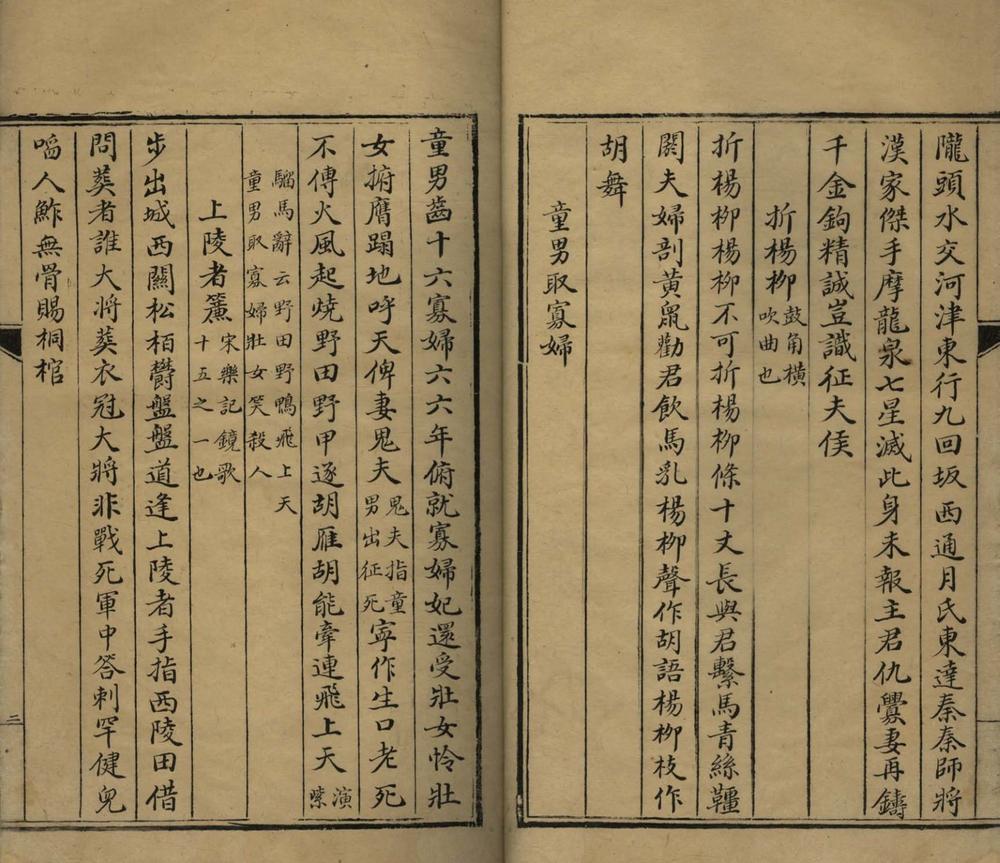 隴頭水交河津東行九回坂西通月氏東達秦秦師將
漢家傑手摩龍泉七星滅此身未報主君仇釁妻再鑄
千金鉤精誠豈識征夫侯
折楊柳鼓角橫吹曲也
折楊柳楊柳不可折楊柳條十丈長與君繫馬青絲韁
關夫婦剖黃罷勸君飲馬乳楊柳聲作胡語楊柳枝作
胡舞
童男取寡婦
童男齒十六寡婦六六年俯就寡婦妃還受壯女憐壯
女擗膺蹋地呼天俾妻鬼夫鬼夫指童男出征死寜作生口老死
不傳火風起燒野田野甲逐胡雁胡能牽連飛上天演㡭
騧馬辭云野田野鴨飛上天
童男取寡婦壯女笑殺人
上陵者篇宋樂記鏡歌十五之一也
步出城西關松栢欝盤盤道逢上陵者手指西陵田借
問葬者誰大將葬衣冠大將非戰死軍中答剌罕健兒
啗人鮓無骨賜桐棺
三